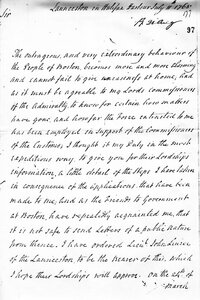 Sir
Launceston in Halifax Harbour July 11th 1768
97
The outragious, and very extraordinary behaviour of
the People of Boston, becomes more and more alarming
and cannot fail to give uneasiness at home, and
as it must be agreable to my Lords commissioners
of the Admiralty to know for certain how matters
have gone, and how far the Force entrusted to me
has been employed in support of the Commissioners
of the Customs, I thought it my Duty in the most
expeditious way to give you for their Lordships
information, a little detail of the Steps I have taken
in consequence of the applications that have been
made to me, And as the Servants to Government
at Boston, have repeatedly acquainted me, that
it is not safe to send Letters of a publick nature
from thence, I have ordered Lieut. John
of the Launceston to be the bearer of this which
I hope their Lordships will approve. On the 24th of
March